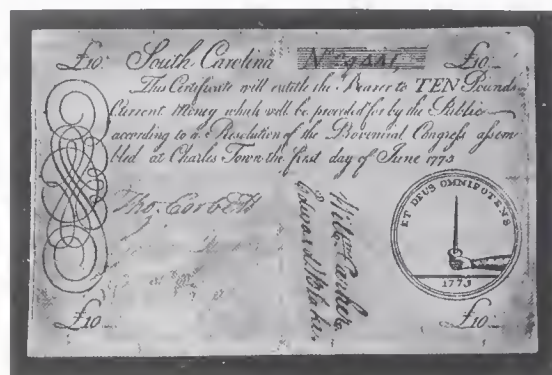 £10: South Carolina No £10:
This Certificate will entitle the Bearer to TEN Pounds
Current Money which will be provided for by the Public
according to a Resolution of the Provincial Congress assem
bled at Charles Town the first day of June 1775
Tho. Corbett
Willm Parker
Edward Blake
ET DEUS OMNIPOTENS
1775
£10 £10